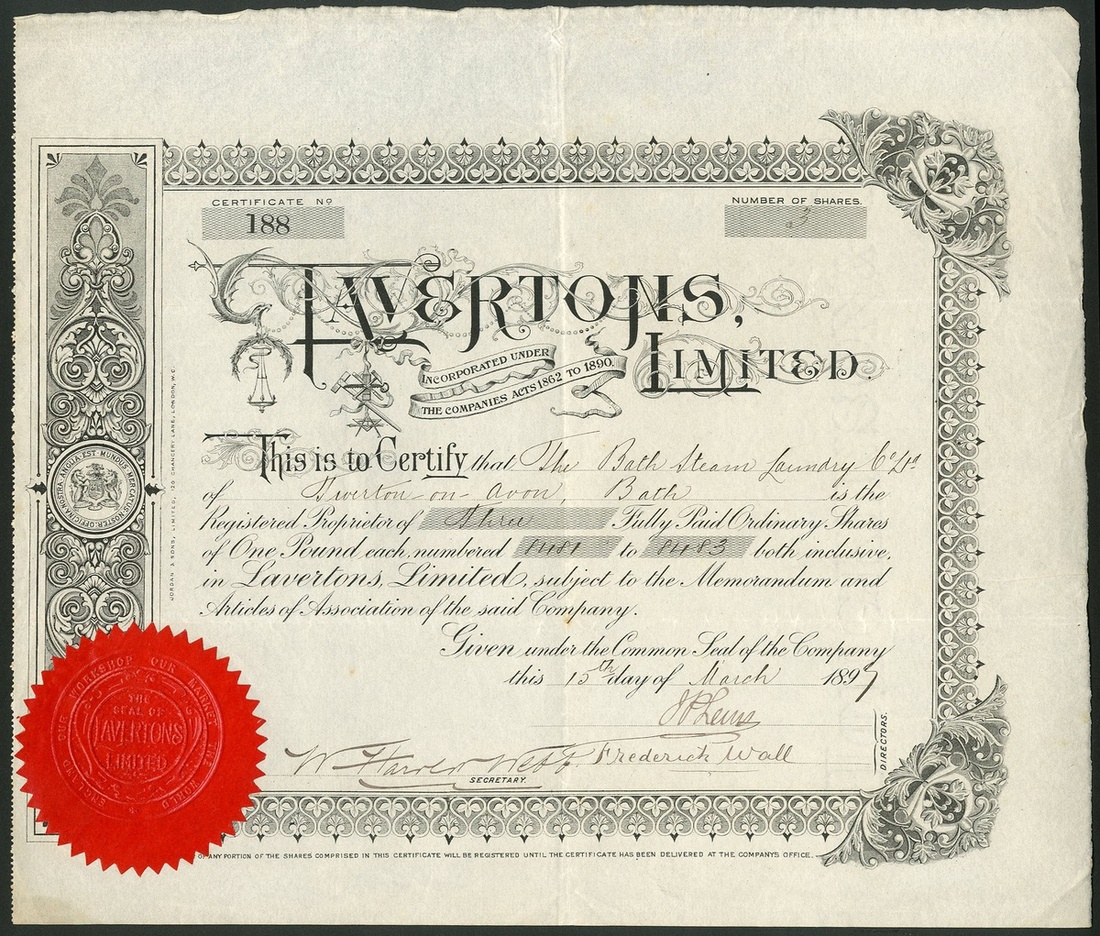 CERTIFICATE No
188
NUMBER OF SHARES.
3
LAVERTONS,
LIMITED.
INCORPORATED UNDER
THE COMPANIES ACTS 1862 TO 1890.
This is to Certify that The Bath Steam Laundry Co Ltd
of Twerton-on-Avon, Bath is the
Registered Proprietor of Three Fully Paid Ordinary Shares
of One Pound each, numbered 8481 to 8483 both inclusive,
in Lavertons, Limited, subject to the Memorandum and
Articles of Association of the said Company.
Given under the Common Seal of the Company
this 15th day of March 1897
Frederick Wall
DIRECTORS.
SECRETARY.
OF ANY PORTION OF THE SHARES COMPRISED IN THIS CERTIFICATE WILL BE REGISTERED UNTIL THE CERTIFICATE HAS BEEN DELIVERED AT THE COMPANYS OFFICE.
JORDAN & SONS, LIMITED, 120 CHANCERY LANE, LONDON, W.C.
OFFICINA NOSTRA: ANGLIA: EST MUNDUS MERCATUS NOSTER:
ENGLAND OUR WORKSHOP OUR MARKET THE WORLD
THE
SEAL OF
LAVERTONS
LIMITED